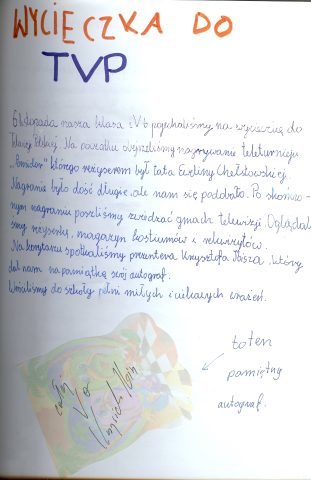 WYCIECZKA DO
TVP
6 listopada nasza klasa IV b pojechaliśmy na wycieczkę do
Telewizji Polskiej. Na początku obejrzeliśmy nagrywanie teleturnieju
którego reżyserem był tata Eweliny Chełstowskiej.
Nagranie było dość długie, ale nam się podobało. Po skończo-
nym nagraniu poszliśmy zwiedzać gmach telewizji. Oglądali-
śmy reżyserkę, magazyn kostiumów i rekwizytów.
Na korytarzu spotkaliśmy prezentera Krzysztofa, który
dał nam na pamiątkę swój autograf.
Wróciliśmy do szkoły pełni miłych i ciekawych wrażeń.
to ten
pamiętny
autograf.